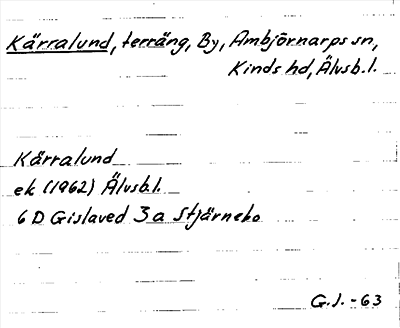 Kärralund, terräng, By, Ambjörnarps sn,
Kinds hd, Älvsb.l.
Kärralund
ek (1962) Älvsb.l.
6 D Gislaved 3 a Stjärnebo
G.J. - 63